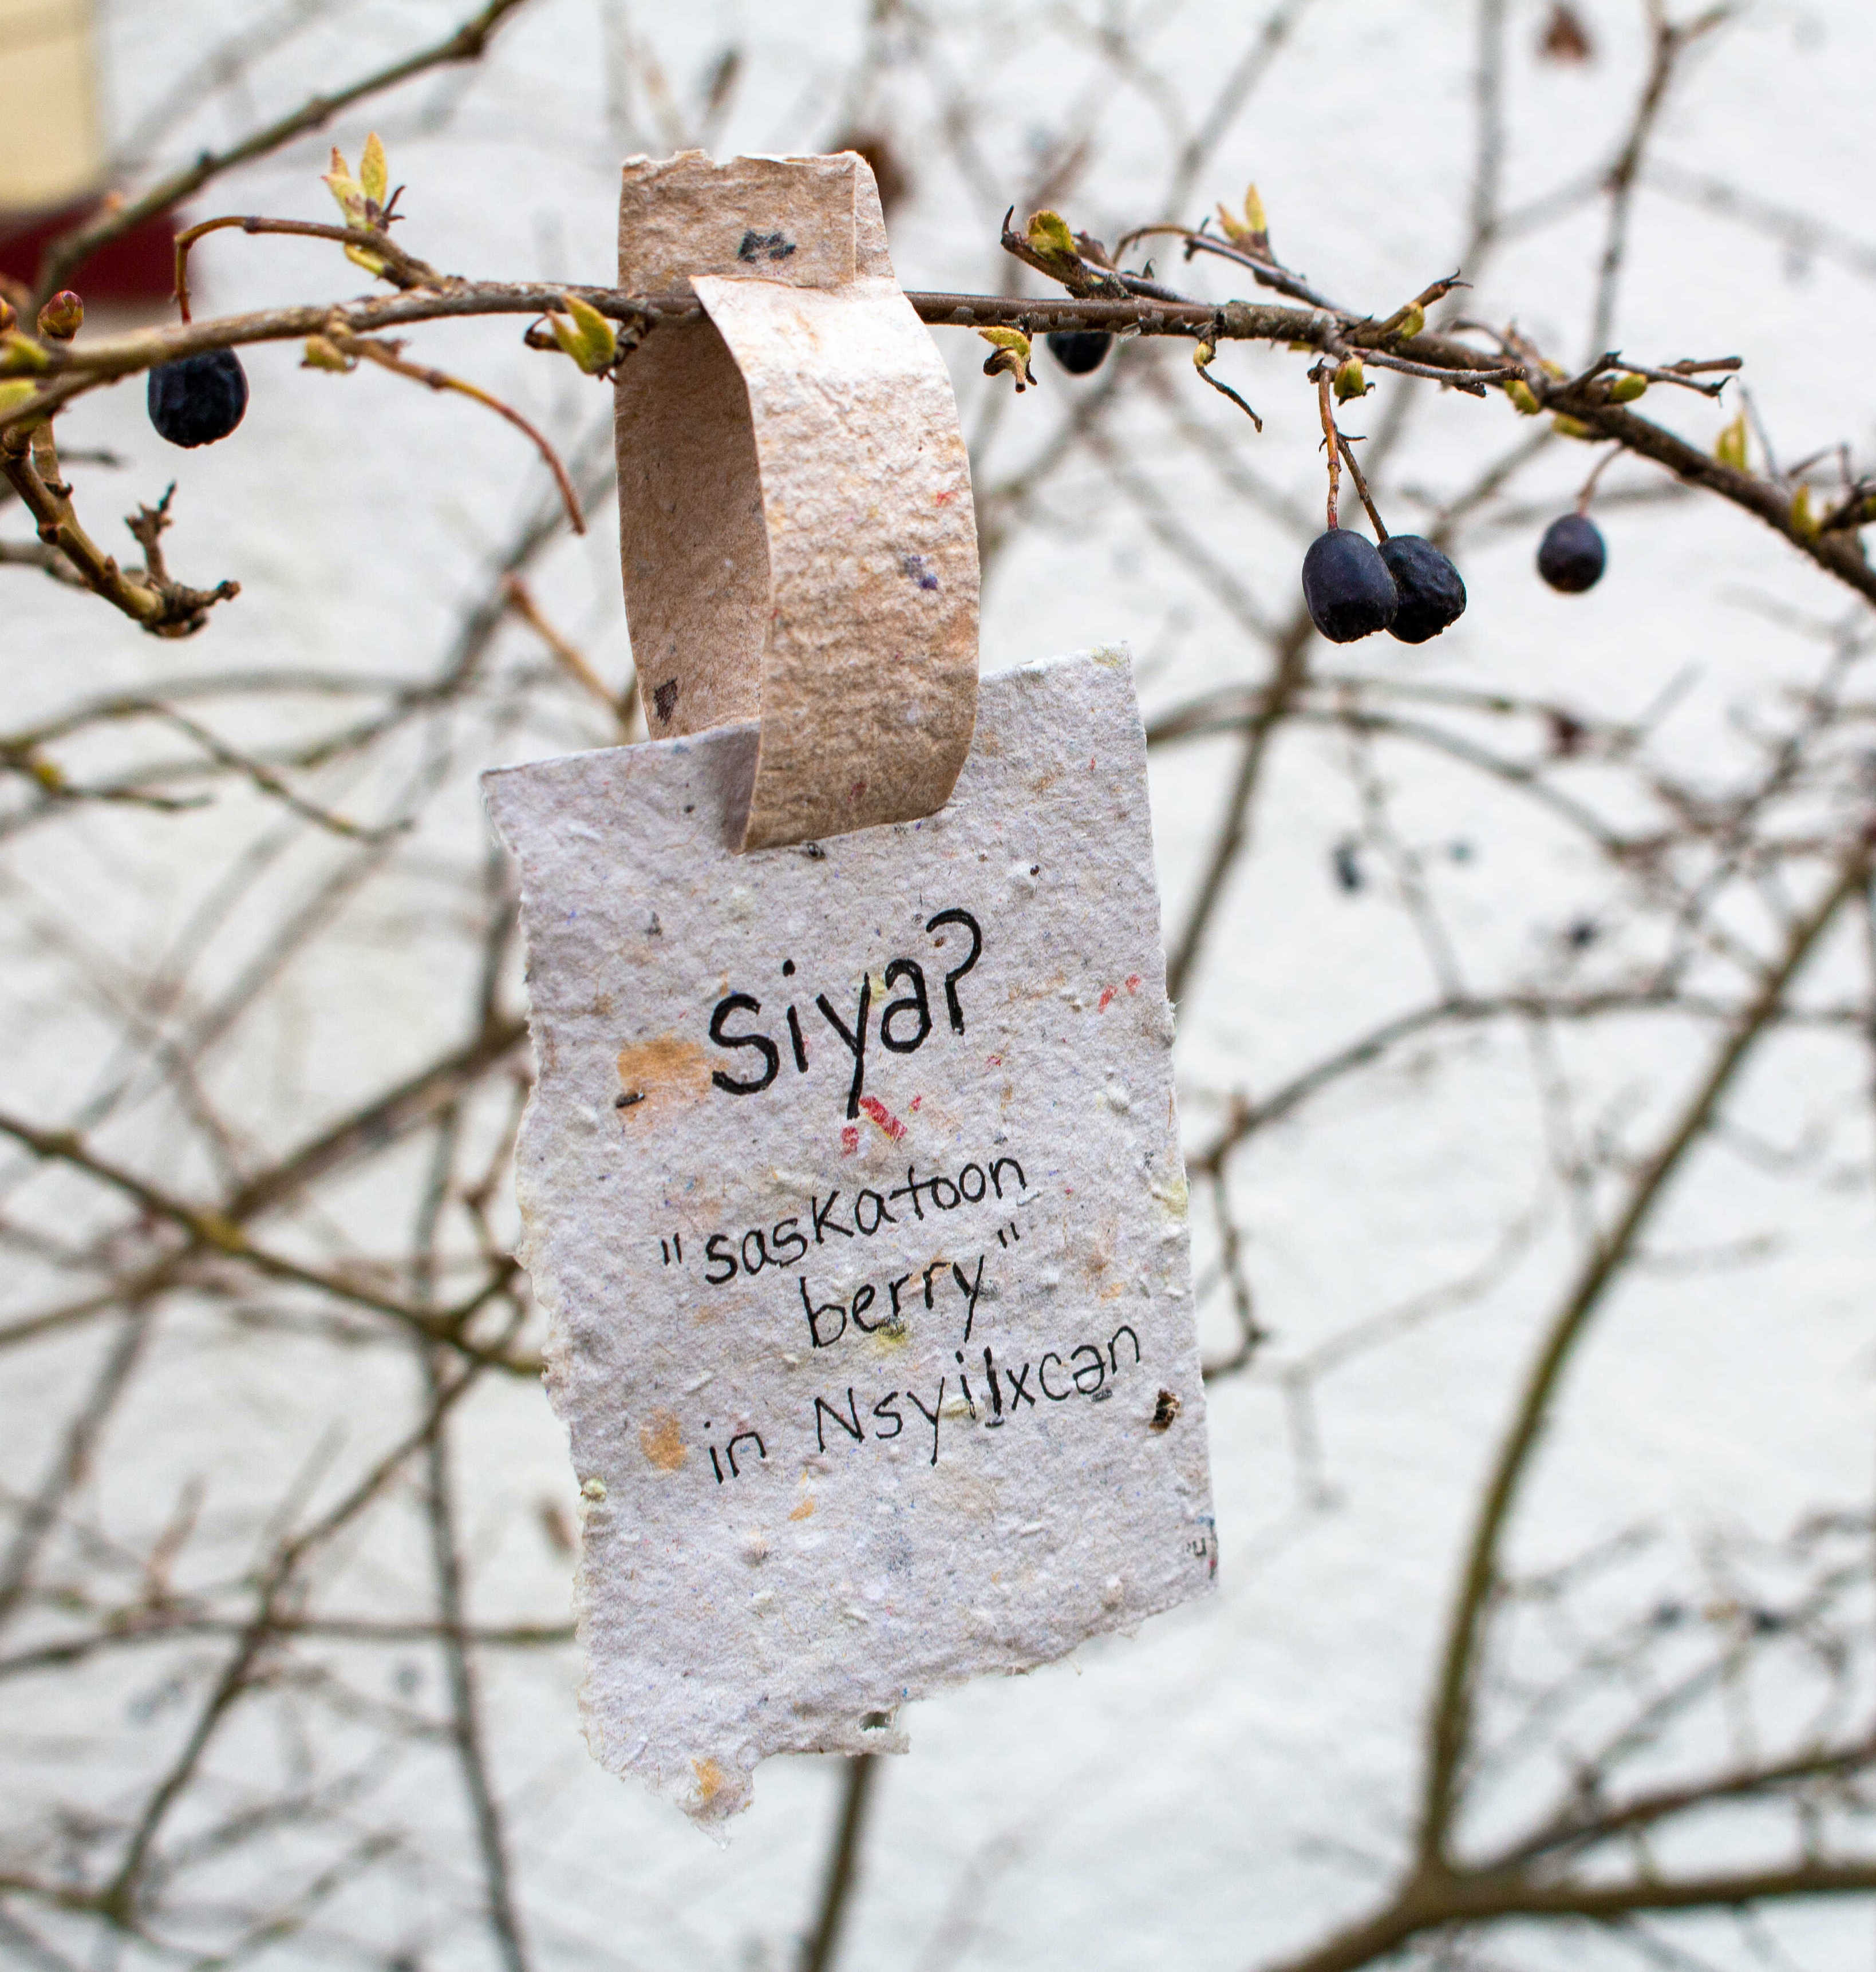 siyaʔ
"saskatoon
berry"
in Nsyilxcən